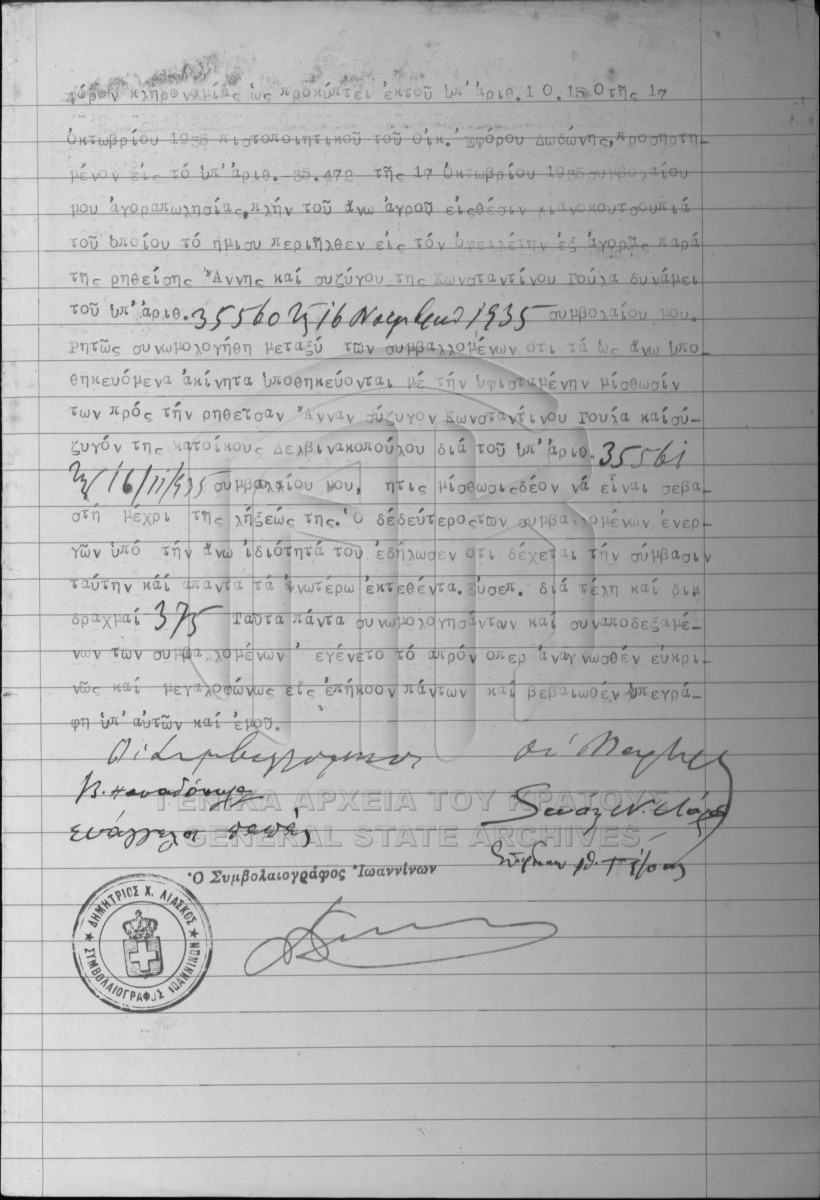 φόρον κληρονομίας ὡς προκύπτει ἐκτοῦ ὑπ' ἀριθ. 10.150 τῆς 17
Ὀκτωβρίου 1935 πιστοποιητικοῦ τοῦ Οἰκ. Ἐφόρου Δωδώνης, προσηρτη-
μένον εἰς τό ὑπ' ἀριθ. 35.472 τῆς 17 Ὀκτωβρίου 1935 συμβολαίου
μου ἀγοραπωλησίας, πλήν τοῦ ἄνω ἀγροῦ εἰςθέσιν Λιανοκουτσουπιά
τοῦ ὁποίου τό ἥμισυ περιῆλθεν εἰς τόν ὀφειλέτην ἐξ ἀγορᾶς παρά
τῆς ρηθείσης Ἄννης καί συζύγου της Κωνσταντίνου Γούλα δυνάμει
τοῦ ὑπ' ἀριθ. 35560 τῆς 16 Νοεμβρίου 1935 συμβολαίου μου.
Ρητῶς συνωμολογήθη μεταξύ των συμβαλλομένων οτι τά ὡς ἄνω ὑπο-
θηκευόμενα ἀκίνητα ὑποθηκεύονται μέ τήν ὑφισταμένην μίσθωσίν
των πρός τήν ρηθεῖσαν Ἄνναν σύζυγον Κωνσταντίνου Γούλα καίσύ-
ζυγόν της κατοίκους Δελβινακοπούλου διά τοῦ ὑπ' ἀριθ. 35561
τῆς 16/11/935 συμβολαίου μου, ητις μίσθωσιςδέον νά εἶναι σεβα-
στή μέχρι της λήξεώς της. Ὁ δέδεύτεροςτων συμβαλλομένων ἐνερ-
γῶν ὑπό τήν ἄνω ἰδιότητά του ἐδήλωσεν οτι δέχεται τήν σύμβασιν
ταύτην κάί απαντα τά ἀνωτέρω ἐκτεθέντα. Εὐσεπ. διά τέλη καί δικ
δραχμαί 375 Ταῦτα πάντα συνωμολογησάντων καί συναποδεξαμέ-
νων των συμβαλλομένων ἐγένετο τό παρόν οπερ ἀναγνωσθέν εὐκρι-
νῶς καί μεγαλοφώνως εἰς ἐπήκοον πάντων καί βεβαιωθέν ὑπεγρά-
φη ὑπ' αὐτῶν καί ἐμοῦ.
Οἱ Συμβαλλόμενοι Οἱ Μάρτυρες
Εὐάγγελος Παπᾶς
ΓΕΝΙΚΑ ΑΡΧΕΙΑ ΤΟΥ ΚΡΑΤΟΥΣ
GENERAL STATE ARCHIVES
Ὁ Συμβολαιογράφος Ἰωαννίνων
ΔΗΜΗΤΡΙΟΣ Χ. ΛΙΑΣΚΟΣ
ΣΥΜΒΟΛΑΙΟΓΡΑΦΟΣ ΙΩΑΝΝΙΝΩΝ